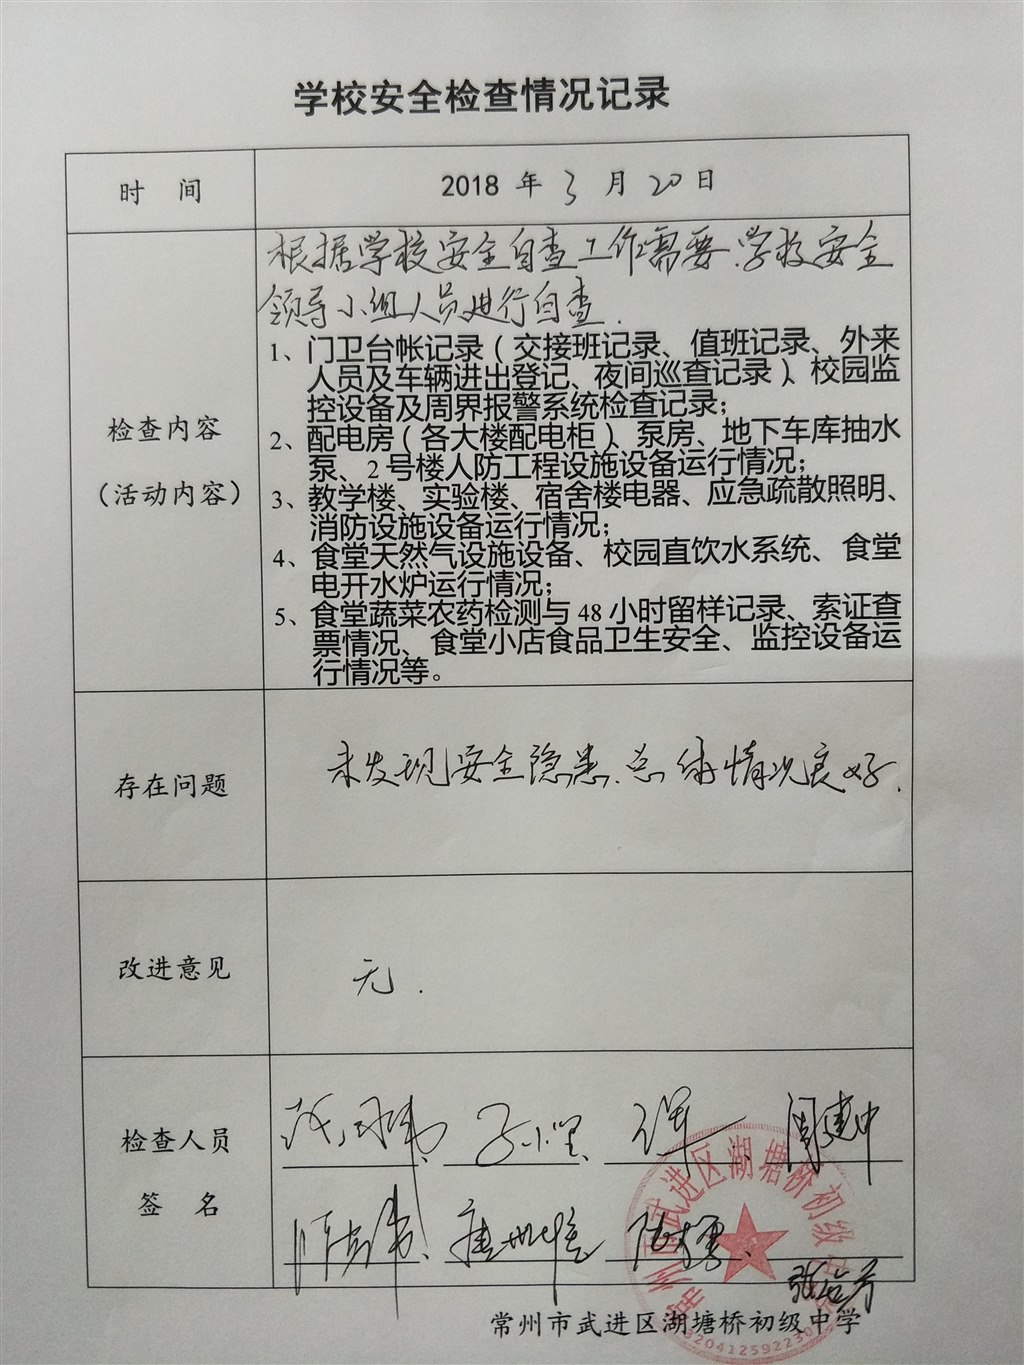 学校安全检查情况记录
时 间
2018 年 3 月 20 日
检查内容
（活动内容）
根据学校安全自查工作需要.学校安全
领导小组人员进行自查.
1、门卫台帐记录（交接班记录、值班记录、外来
人员及车辆进出登记、夜间巡查记录）、校园监
控设备及周界报警系统检查记录；
2、配电房（各大楼配电柜）、泵房、地下车库抽水
泵、2 号楼人防工程设施设备运行情况；
3、教学楼、实验楼、宿舍楼电器、应急疏散照明、
消防设施设备运行情况；
4、食堂天然气设施设备、校园直饮水系统、食堂
电开水炉运行情况；
5、食堂蔬菜农药检测与 48 小时留样记录、索证查
票情况、食堂小店食品卫生安全、监控设备运
行情况等。
存在问题
未发现安全隐患.总体情况良好.
改进意见
无.
检查人员
签 名
周建中
常州市武进区湖塘桥初级中学
常州市武进区湖塘桥初级中学